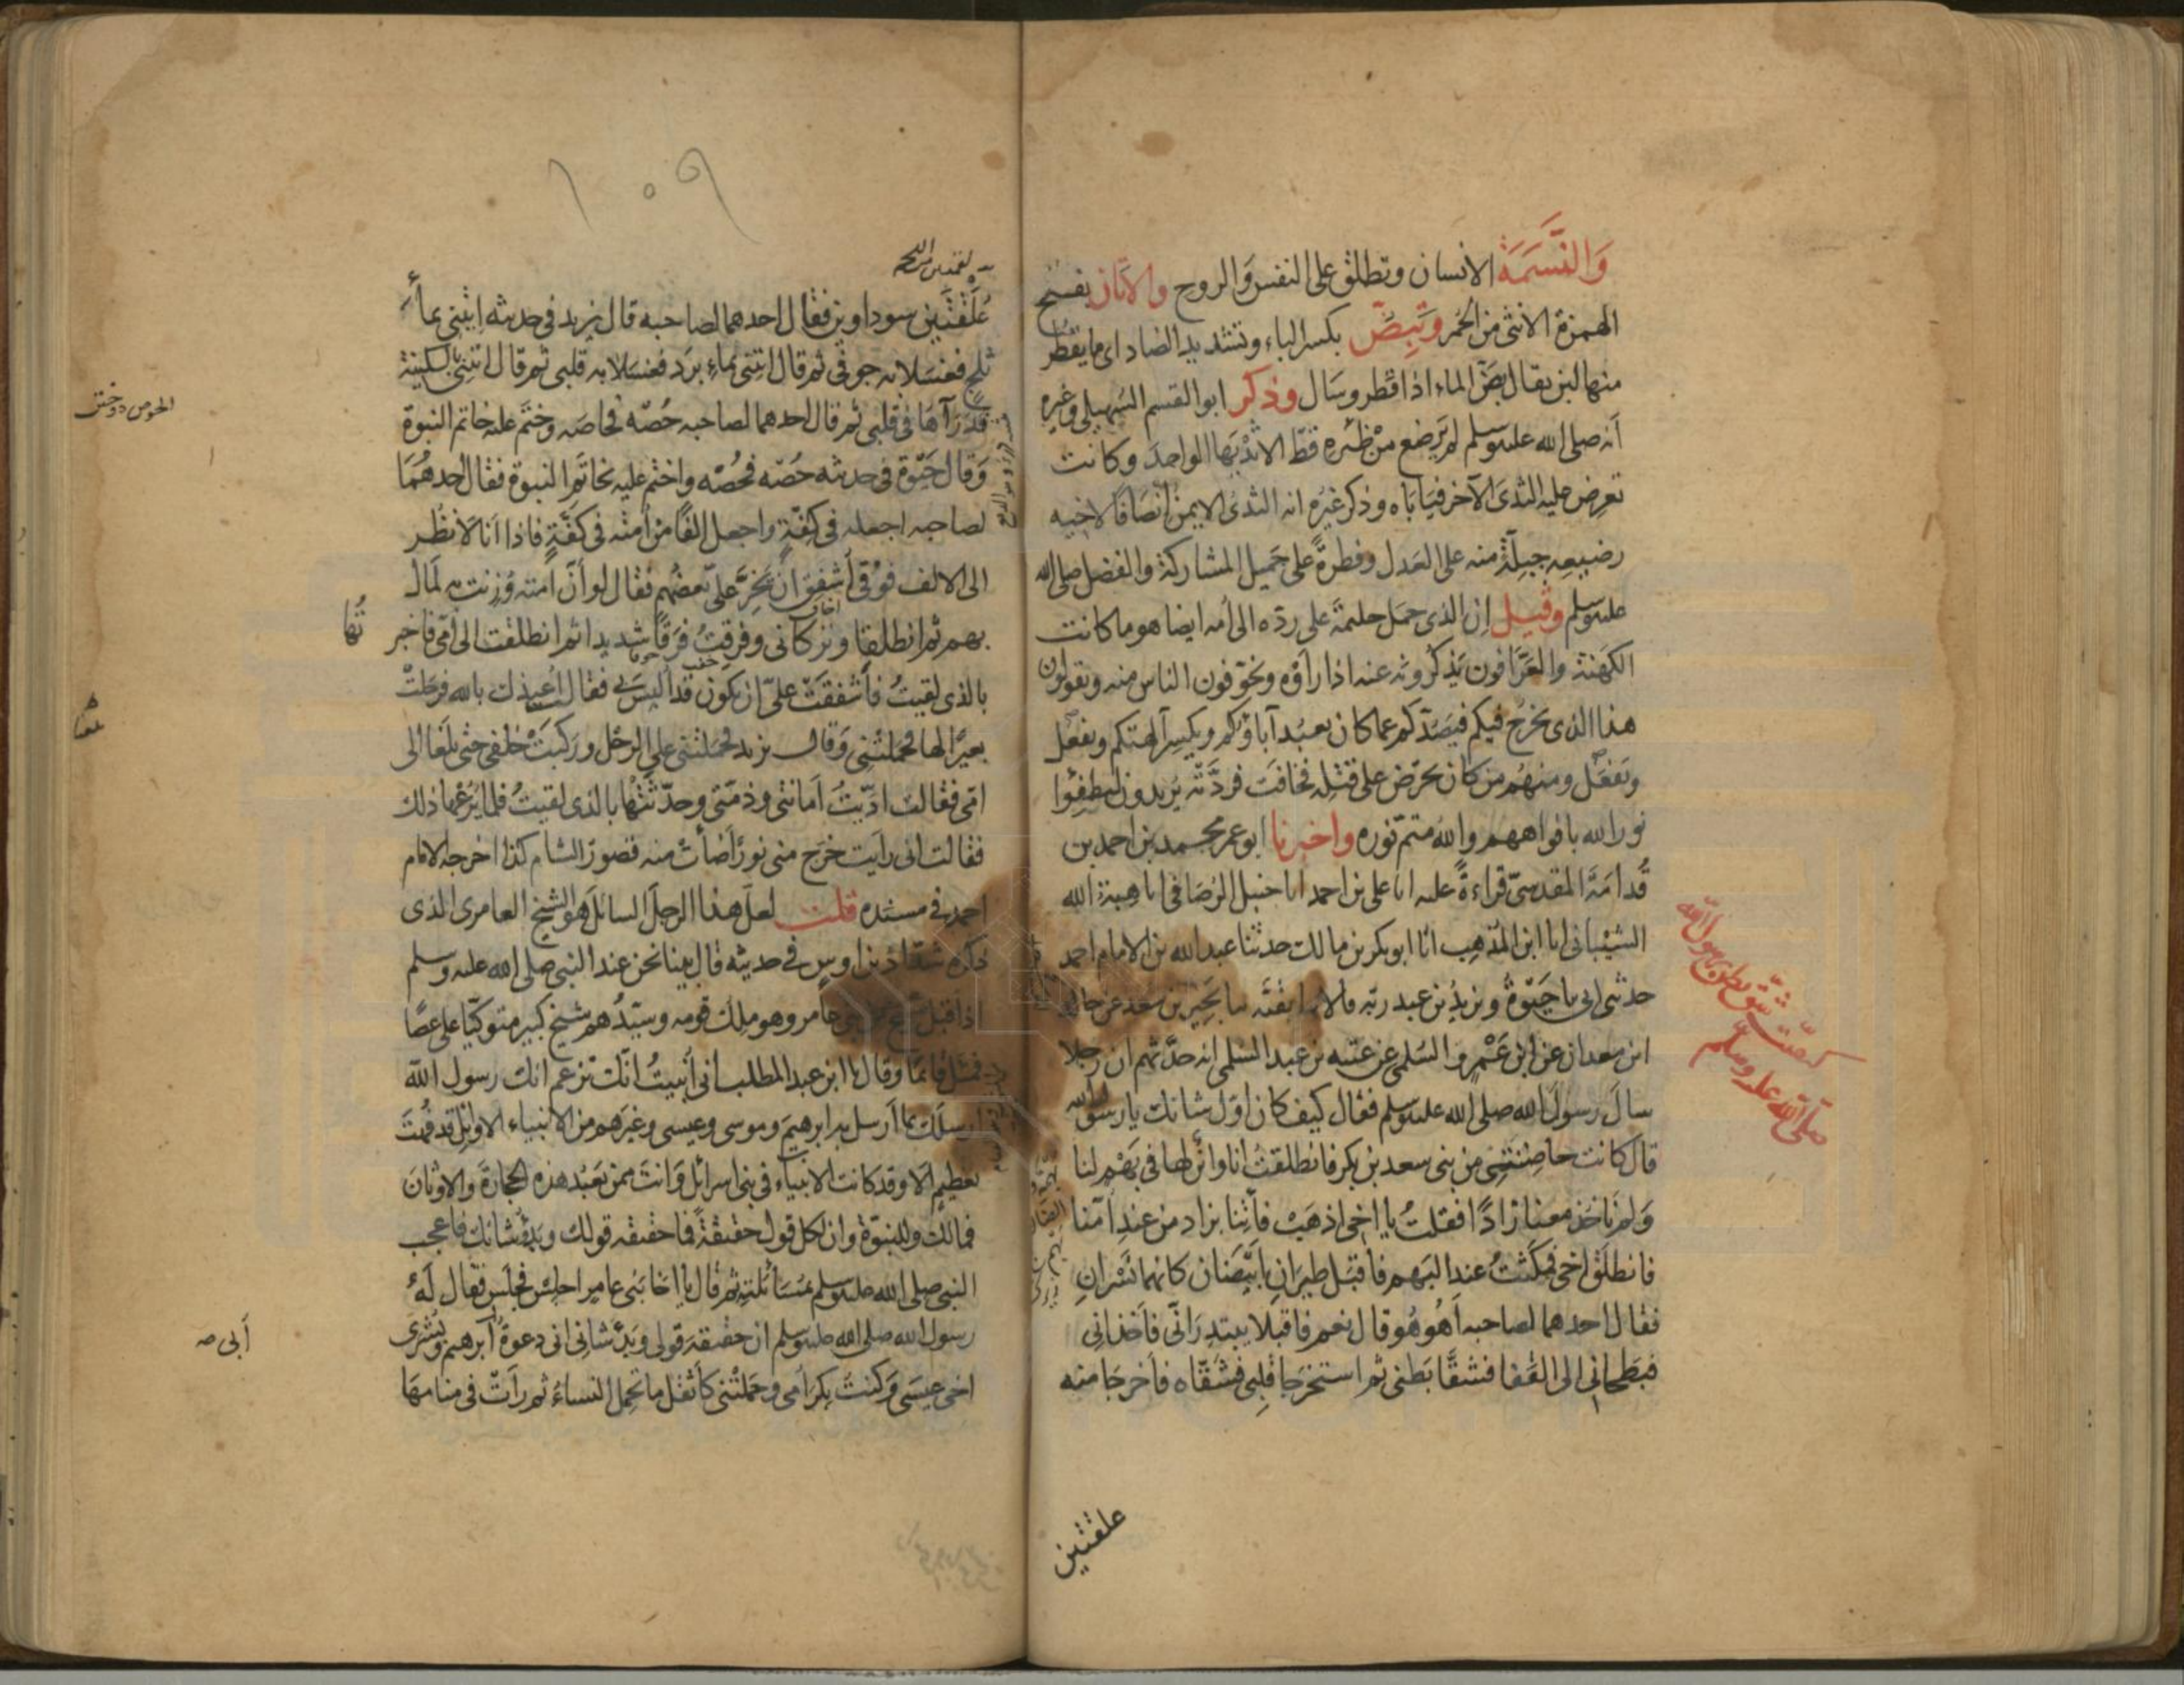 وَالنَّسَمَةُ الانسان وتطلق على النفس وَالروح والاَتَان بفتح
الهمزة الانثى من الحُمر وَتَبِضّ بكسر الباء وتشديد الضاد اى ما يقطُر
منها لبن يقال بَضّ الماء اذا قطر وسَال وذكر ابو القسم السُهيلى وغيره
اَنه صلى الله عليه وسلم لم يَرضع من ظئره قطّ الا ثَدْيَها الواحِدَ وكانت
تعرِض عليه الثدىَ الآخر فيَابَاه وذكر غيرُه انه الثدىُ الايمنُ اِنْصَافًا لاخيه
رضيعِه جِبِلّةً منه على العَدل وفطرةً على جَميل المشاركة والفضل صلى الله
عليه وسلم وقيل اِن الذى حمَل حليمةَ على ردّه الى اُمه ايضا هو ما كانت
الكَهَنة والعَرَّافون يَذكُرونه عنه اذا رأوْه ويخوّفون الناس منه ويقولون
هذا الذى يخرُج فيكم فيَصُدّكم عما كان يعبُد آباؤكم ويكسِر آلهتكم ويفعَل
ويَفعَل ومنهُم من كان يحرّض على قتْلِه فخافَت فردَّته يُريدون ليُطفِئوا
نورَالله بافواههم والله متمّ نوره واخبرنا ابو عمر محمد بن احمد بن
قُدامَةَ المقدسىّ قراءةً عليه انا على بن احمد انا حنبل الرُصَافى انا هبة الله
الشيْبانى انا ابن المذهِب انا ابو بكر بن مالك حدثنا عبد الله بن الامام احمد
حدثنى ابى نا حَيْوَةُ ويزيدُ بن عبد ربّه قالا نا بقيّه نا بَحِيْر بن سعد عن خالد
ابن معدان عن ابن عَمْرٍو السُلمى عن عتبه بن عبد السُلمى انه حدّثهم ان رجلا
سالَ رسولَ الله صلى الله عليه وسلم فقال كيف كان اوّل شانك يا رسول الله
قال كانت حاضِنَتى مِن بنى سعد بن بكر فانطلقتُ انا وابنٌ لها فى بَهْمٍ لنا
وَلم نَاخُذ معنا زادًا فقلتُ يا اخى اذهَبْ فأتِنا بزاد من عندِ اُمّنا
فانطلَق اخى فمكَثتُ عند البَهم فاَقبَل طيرَانِ اَبيَضَان كانهما نَسْرانِ
فقال احدهما لصاحبه اَهُو هُو قال نعم فاقبَلا يبتدِرَانّى فاَخذانى
فبَطحانى الى القَفا فشقَّا بَطنى ثم استخرَجا قلبى فشَقّاه فاَخرجَا منه
علقتين
قصّة شقّ بطن رسول الله
صلّى الله عليه وسلم
١٠٥٩
عَلَقَتَين سوداوين فقال احدهما لصاحبه قال يزيد فى حديثه اِئتِنى بماءِ
ثلجٍ فغَسَلا به جوفى ثم قال ائتِنى بماءِ بَرَد فغسَلا به قلبى ثم قال ائتِنى بالسكينة
فذَرّاهَا فى قلبى ثم قال احدهما لصاحبه حُصّه فحاصَه وختَم عليه خاتم النبوة
وَقال حَيْوَة فى حديثه حُصّه فحُصّه واختم عليه بخاتَم النبوة فقال احدهُمَا
لصاحبه اجعله فى كِفّةٍ واجعل الفًا من اُمته فى كفّةٍ فاذا اَنا لاَنظُر
الى الالف فوْقى اُشفِق ان يَخِرَّ علىّ بعضُهم فقال لو اَنّ اُمته وُزِنت به لَمَال
بهم ثم انطلقا وتركانى وفرِقتُ فَرَقًا شديدا ثم انطلقت الى اُمّى فاخبر
تُها
بالذى لقيتُ فأشفقَتْ علىّ ان يكون قد اُلبِسَ بى فقالت اُعيذك بالله فرحَلتْ
بعيرًا لها فحمَلتْنى وَقال يزيد فحمَلتْنى على الرحْل وركبَتْ خلفى حتى بلَغنا الى
امّى فقالت ادّيتُ اَمانتى وذمّتى وحدّثتها بالذى لقيتُ فلم يَرُعْها ذلك
فقالت انى رايت خرَج منى نورًا اضاَءتْ منه قصورُ الشام كذا اخرجه الامام
احمد فى مسنده قلت لعل هذا الرجلَ السائلَ هو الشيخ العامرى الذى
ذكره شدّاد بن اوس فى حديثه قال بينا نحن عند النبى صلى الله عليه وسلم
اذ اقبل شيخ من بنى عامر وهو ملِك قومه وسيّدُهم شيخ كبير متوكّيًا على عصًا
فمثَل قائمًا وقال يا ابن عبد المطلب انى اُنبيتُ انّك تزعم انك رسول الله
ارسلَك بما اَرسل به ابرهيمَ وموسى وعيسى وغيرَهم من الانبياء الا وانك قد فُهتَ
بعظيمٍ اَلا وقد كانت الانبياء فى بنى اسرائل وَانت ممن يَعبُد هذه الحجارَةَ والاوثانَ
فمالك وللنبوّة وان لكل قول حقيقةً فما حقيقه قولك وبَدْؤ شانك فاعجب
النبى صلى الله عليه وسلم مَسَألَتِه ثم قال يا اخا بَنى عامر اجلِس فجلَس فقال لَهُ
رسول الله صلى الله عليه وسلم ان حقيقة قولى وبَدْءَ شانى انى دعوةُ ابرهيم وبُشرى
اخى عيسَى وَكنت بِكرَ اُمى وحَملتْنى كأثقل ما تحمِل النساءُ ثم رأتْ فى منامهَا
اَبى صه